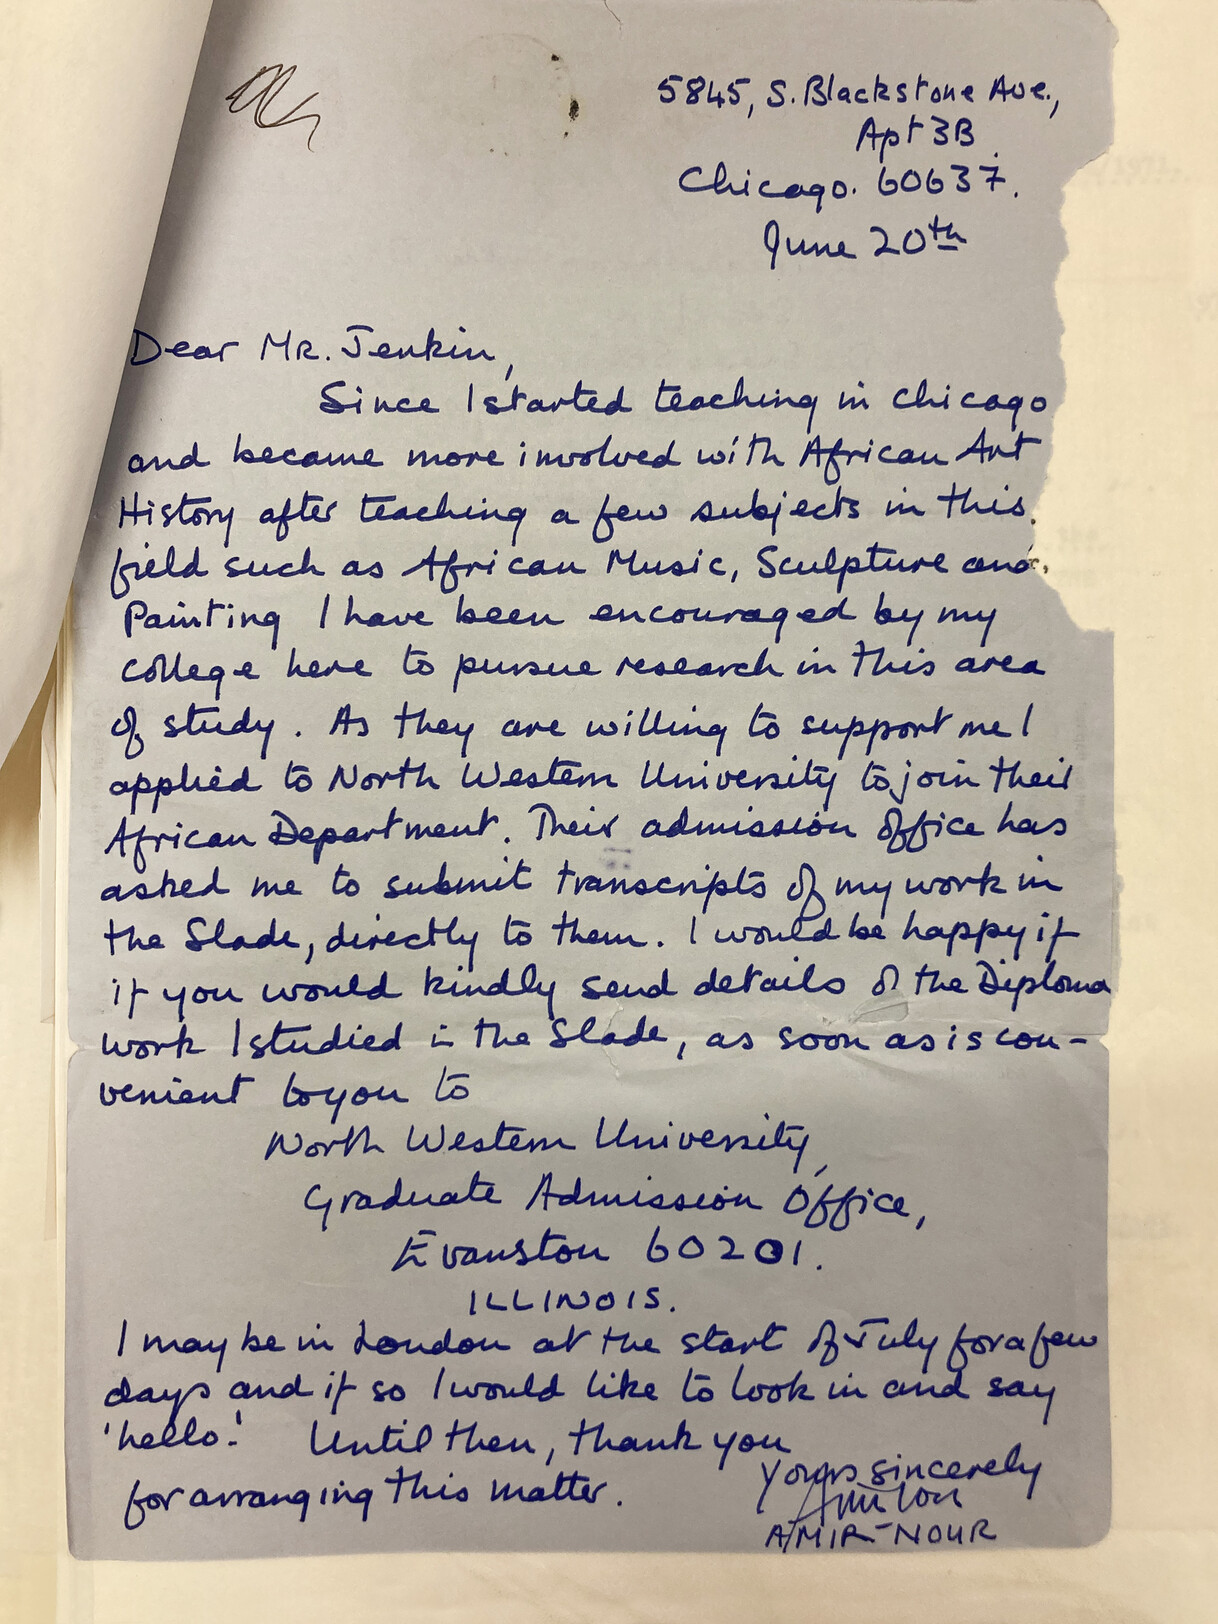 5845, S. Blackstone Ave.,
Apt 3B
Chicago. 60637.
June 20th
Dear Mr. Jenkin,
Since I started teaching in Chicago
and became more involved with African Art
History after teaching a few subjects in this
field such as African Music, Sculpture and
Painting I have been encouraged by my
college here to pursue research in this area
of study. As they are willing to support me I
applied to North Western University to join their
African Department. Their admission office has
asked me to submit transcripts of my work in
the Slade, directly to them. I would be happy if
if you would kindly send details of the Diploma
work I studied in the Slade, as soon as is con-
venient to you to
North Western University,
Graduate Admission Office,
Evanston 60201.
ILLINOIS.
I may be in London at the start of July for a few
days and if so I would like to look in and say
'hello.' Until then, thank you
for arranging this matter.
Yours sincerely
AMIR-NOUR